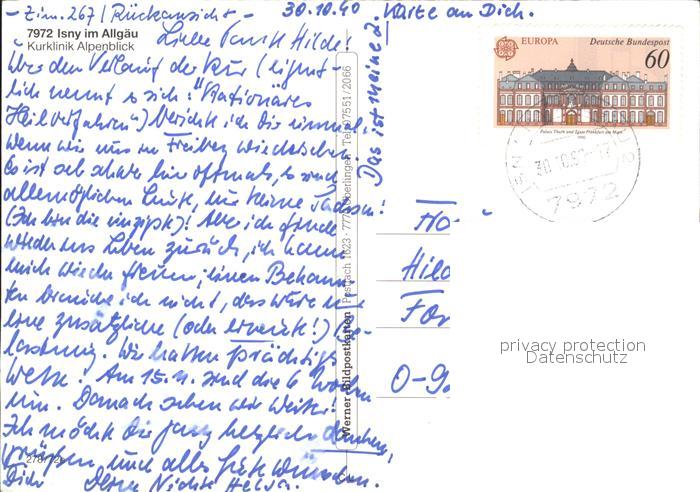 - Zim. 267/Rückansicht - 30.10.90
7972 Isny im Allgäu
Kurklinik Alpenblick
Liebe Tante Hilde!
Über den Verlauf der Kur (eigent-
lich nennt es sich: "Stationäres
Heilverfahren") berichte ich Dir einmal,
wenn wir uns in Freiberg wiedersehen.
Es ist sehr schwer hier oftmals, es sind
alle möglichen Leute, nur keine
(Ich bin die einzige)! Aber ich finde
wieder ins Leben zurück, ich kann
mich wieder freuen; einen Bekann-
ten brauche ich nicht, das wäre
eine zusätzliche (oder erneute!) Be-
lastung. Wir hatten prächtiges
Wetter. Am 15.11. sind die 6 Wochen
um. Danach sehen wir weiter!
Ich möchte Dir ganz herzlich
grüßen und alles Gute wünschen.
Dich Deine Nichte Helga.
Das ist meine 2. Karte an Dich.
Werner-Bildpostkarten Postfach 1623 · 7770 Überlingen · Tel. 07551/2066
EUROPA Deutsche Bundespost
60
Palais Thurn und Taxis Frankfurt am Main
1990
7972
Hild
O-9
privacy protection
Datenschutz